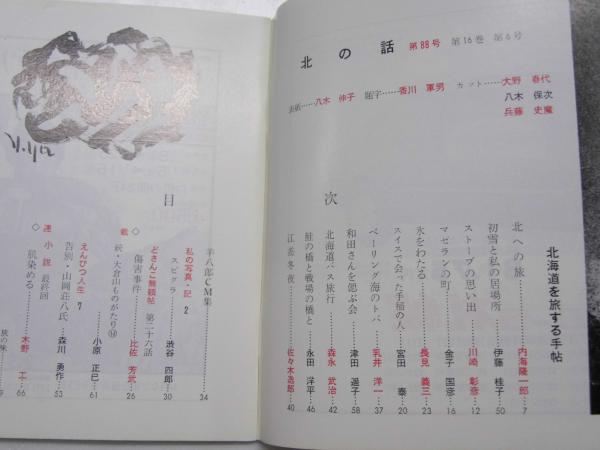 北の話 第88号 第16巻 第6号
表紙……八木 伸子 題字……香川 軍男 カット……大野 春代
八木 保次
兵藤 史魔
北海道を旅する手帖
目次
北への旅……内海隆一郎 7
初雪と私の居場所……伊藤 桂子 50
ストーブの思い出……川崎 彰彦 12
マゼランの町……金子 国彦 16
氷をわたる……長見 義三 23
スイスで会った手稲の人……宮田 泰 20
ベーリング海のトバ……乳井 洋一 37
和田さんを偲ぶ会……津田 遥子 58
北海道バス旅行……森永 武治 42
鮭の橋と戦場の橋と……永田 洋平 46
江差冬夜……佐々木逸郎 40
羊八郎CM集 34
私の写真・記 2
スピグラ……渋谷 四郎 30
どさんこ無頼帖 第二十六話
傷害事件……比佐 芳武 26
◇連載
続・大倉山ものがたり⑭……小原 正巳 61
えんぴつ人生 7
告別・山岡荘八氏……森川 勇作 53
◇連載小説 最終回
肌染める……木野 工 66